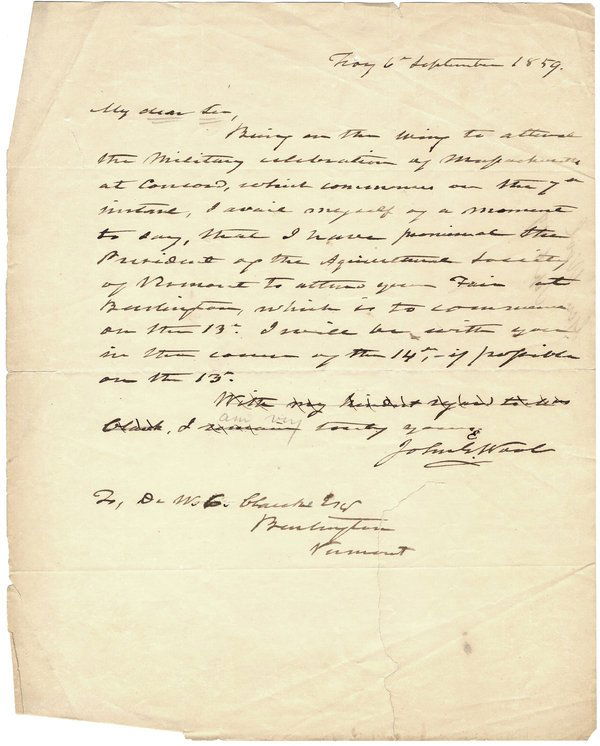 Troy 6th September 1859.
My dear Sir,
Being on the wing to attend
the Military celebration of Massachusetts
at Concord, which commences on the 7th
instant, I avail myself of a moment
to say, that I have promised the
President of the Agricultural Society
of Vermont to attend your Fair at
Burlington, which is to commence
on the 13th. I will be with you
in the course of the 14th,- if possible
on the 13th.
With my kindest regard to Mrs
Clark, I remain am very truly yours
John E. Wool
To, De W. C. Clarke Esq
Burlington
Vermont